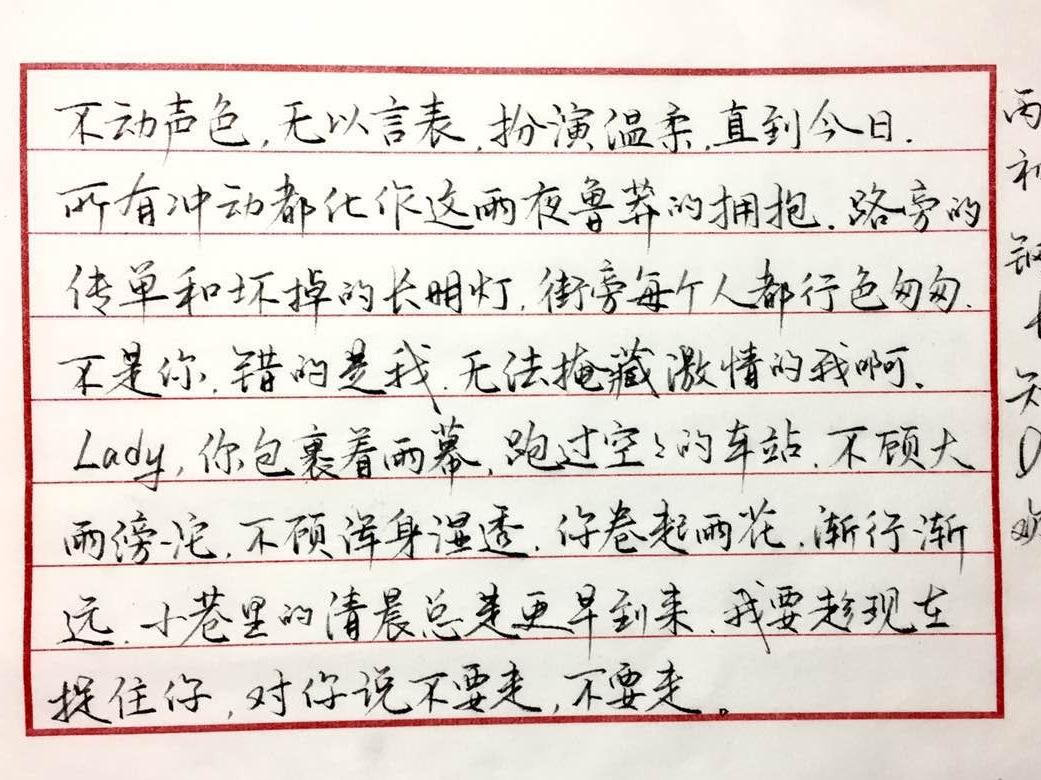 不动声色,无以言表,扮演温柔,直到今日.
所有冲动都化作这雨夜鲁莽的拥抱.路旁的
传单和坏掉的长明灯,街旁每个人都行色匆匆.
不是你,错的是我.无法掩藏激情的我啊.
Lady,你包裹着雨幕,跑过空々的车站.不顾大
雨滂沱,不顾浑身湿透.你卷起雨花,渐行渐
远.小巷里的清晨总是更早到来.我要趁现在
捉住你,对你说不要走,不要走。